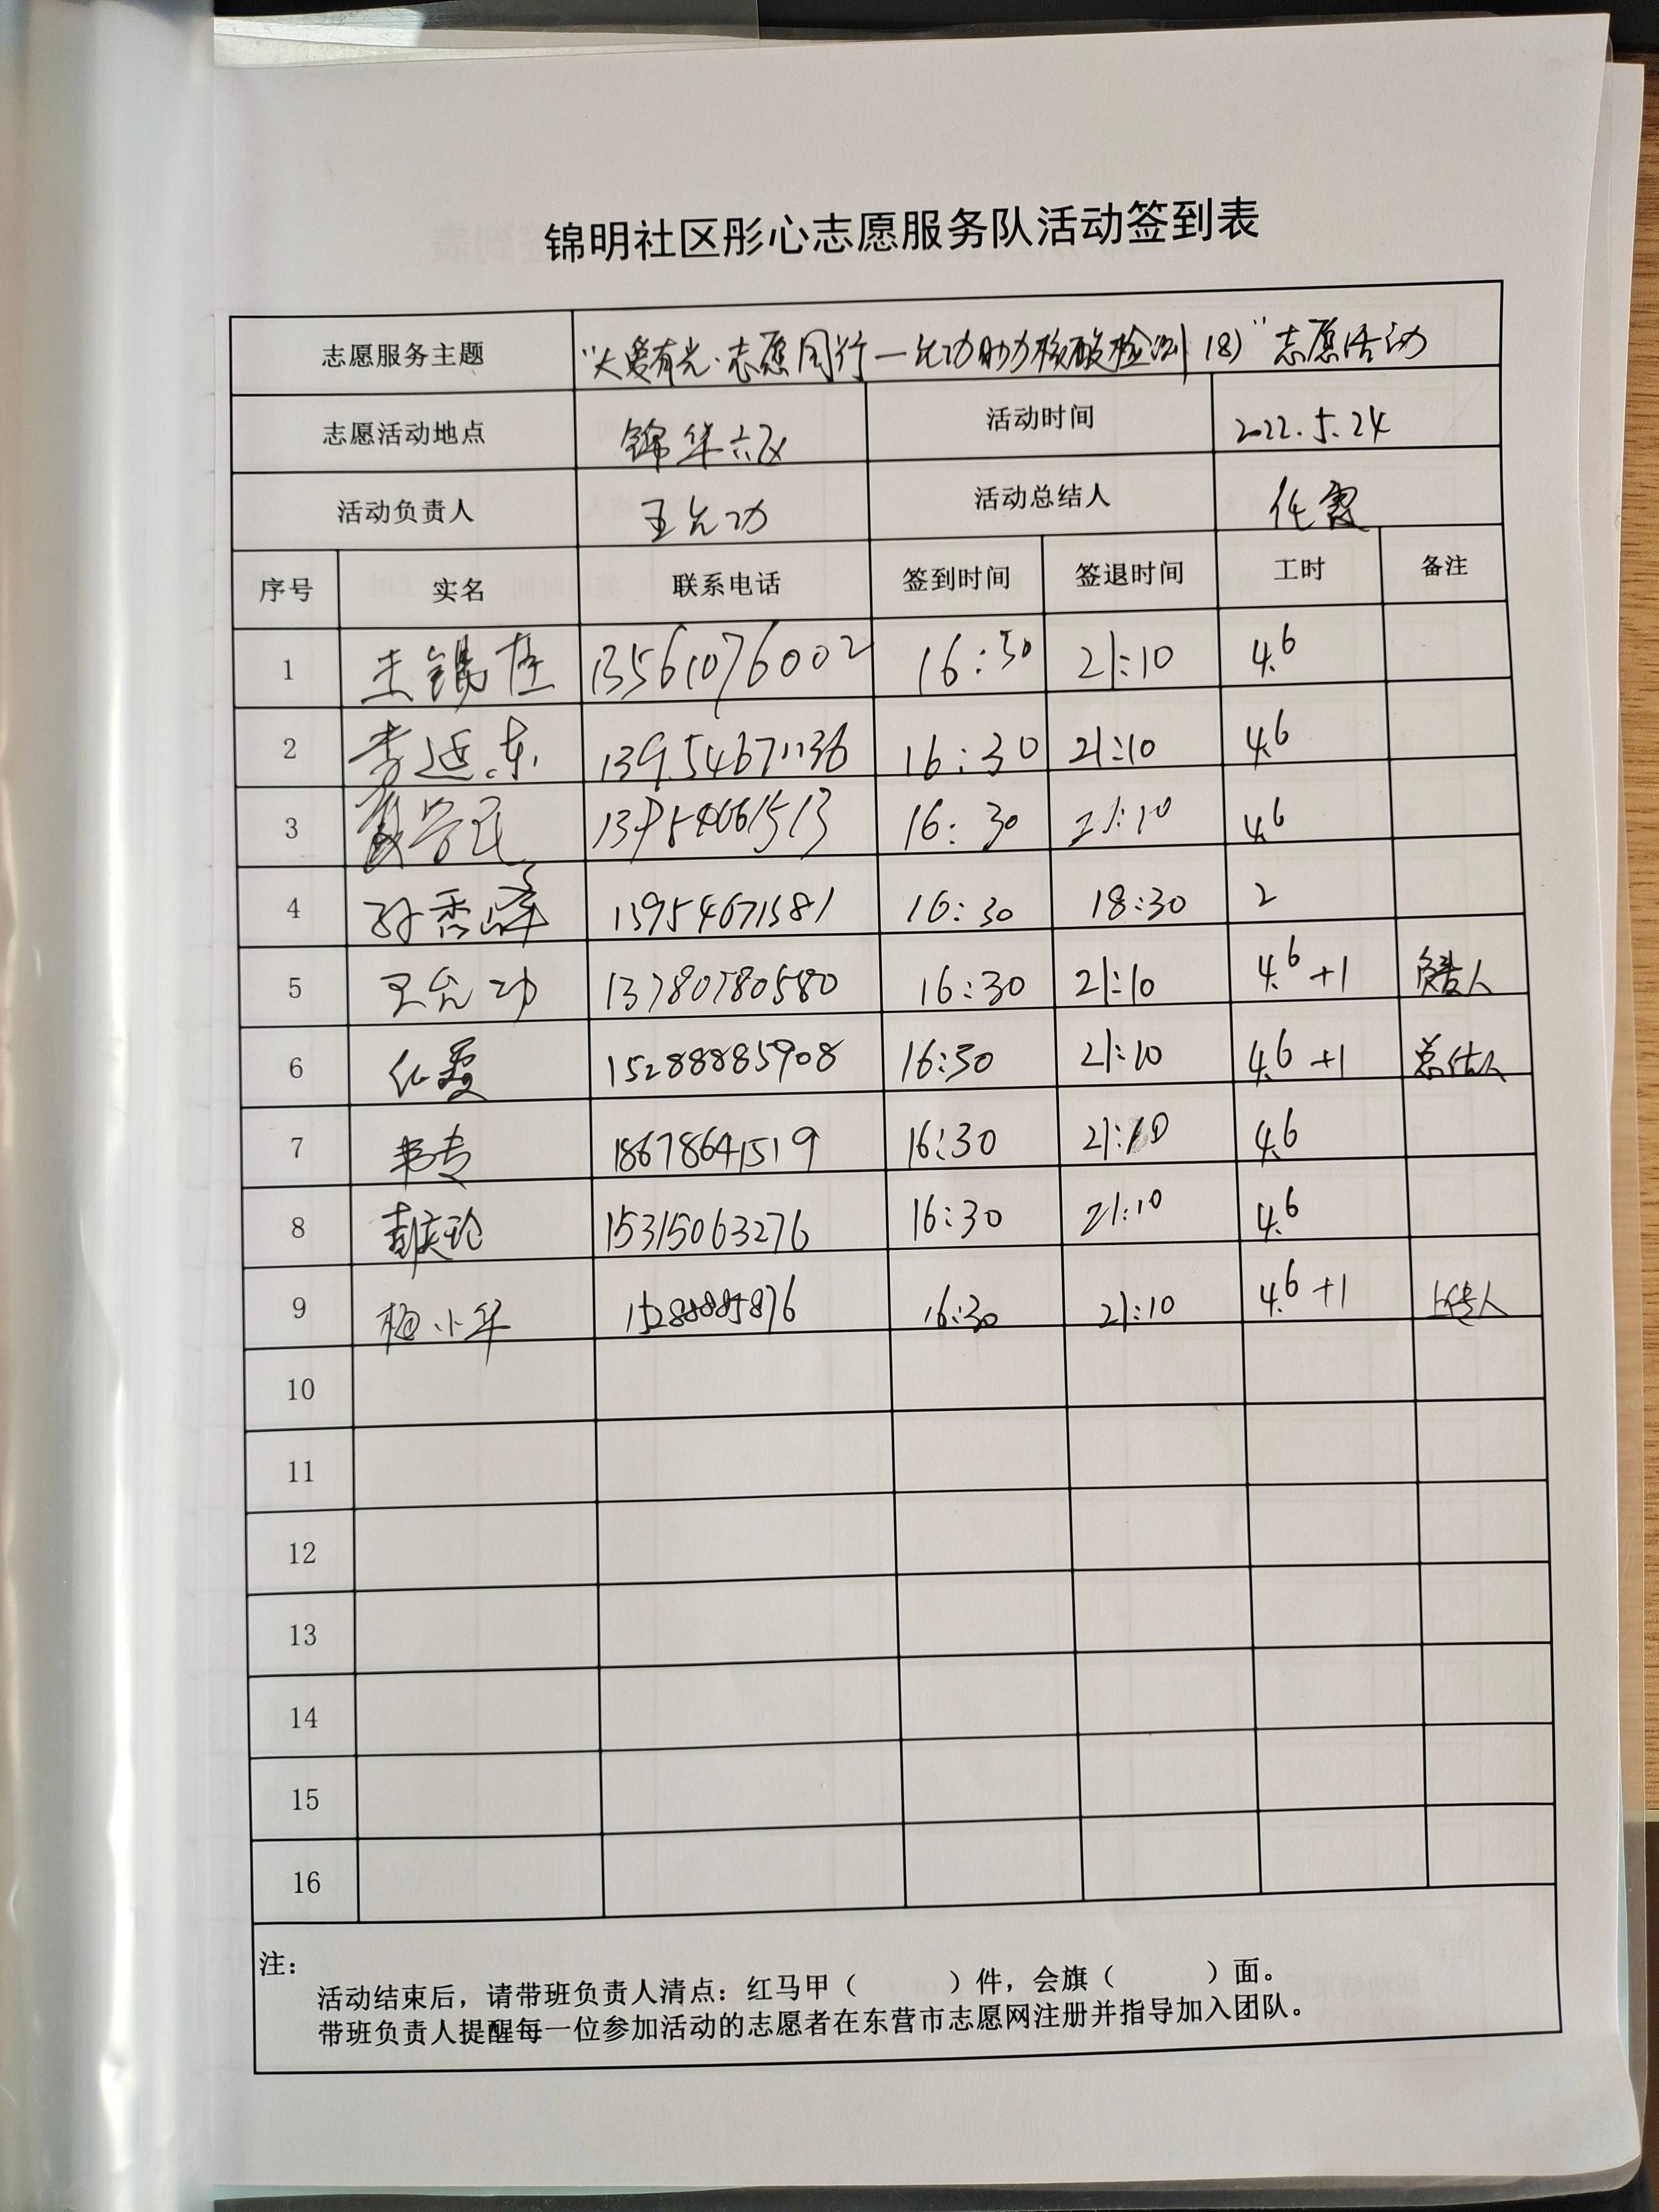 锦明社区彤心志愿服务队活动签到表
志愿服务主题 “大爱有光·志愿同行—允功助力核酸检测(18)”志愿活动
志愿活动地点 锦华六区 活动时间 2022.5.24
活动负责人 王允功 活动总结人 任霞
序号 实名 联系电话 签到时间 签退时间 工时 备注
1 王锡 13561076002 16:30 21:10 4.6
2 李延东 13954671136 16:30 21:10 4.6
3 13954661513 16:30 21:10 4.6
4 孙秀峰 13954671381 16:30 18:30 2
5 王允功 13780780580 16:30 21:10 4.6+1 负责人
6 任霞 15288885908 16:30 21:10 4.6+1 总结人
7 18678641519 16:30 21:10 4.6
8 15315063276 16:30 21:10 4.6
9 梅小华 15288885876 16:30 21:10 4.6+1 上传人
10
11
12
13
14
15
16
注:
活动结束后,请带班负责人清点:红马甲( )件,会旗( )面。
带班负责人提醒每一位参加活动的志愿者在东营市志愿网注册并指导加入团队。